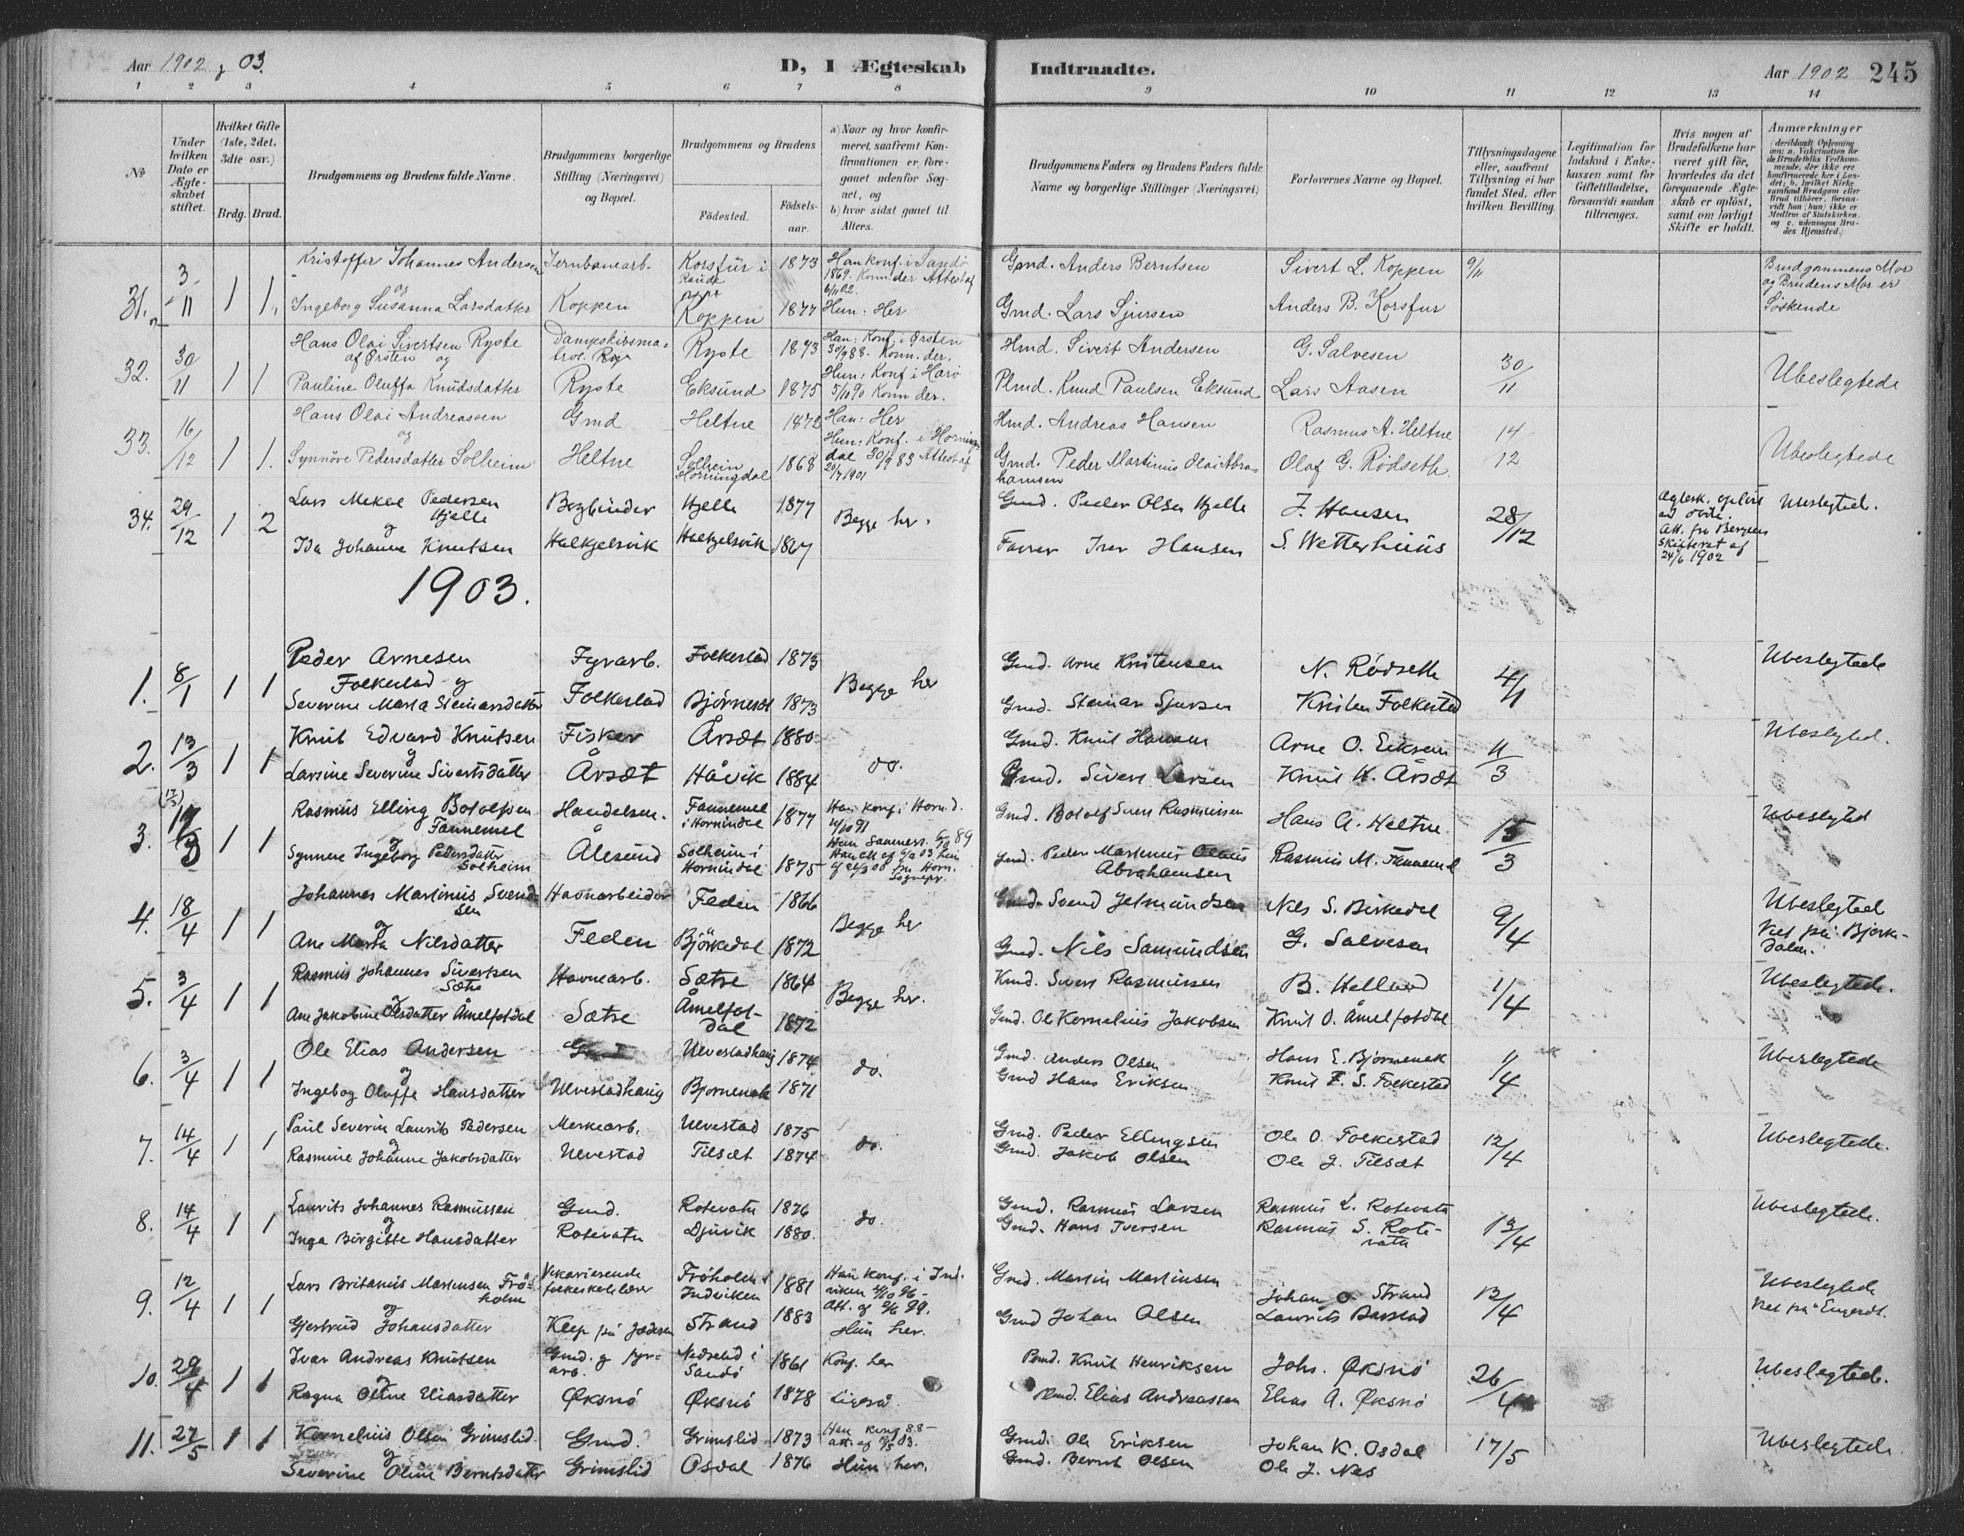 Aar 1902 g 03. D, I Ægteskab Indtraadte. Aar 1902 245
1 2 3 4 5 6 7 8 9 10 11 12 13 14
No
Under hvilken Dato er Ægteskabet stiftet.
Hvilket Gifte (1ste, 2det, 3die osv.)
Brdg. Brud.
Brudgommens og Brudens fulde Navne.
Brudgommens borgerlige Stilling (Næringsvei) og Bopæl.
Brudgommens og Brudens
Födested. Födselsaar.
a) Naar og hvor konfirmeret, saafremt Konfirmationen er foregaaet udenfor Sognet, og
b) hvor sidst gaaet til Alters.
Brudgommens Faders og Brudens Faders fulde Navne og borgerlige Stillinger (Næringsvei)
Forlovernes Navne og Bopæl.
Tillysningsdagene eller, saafremt Tillysning ei har fundet Sted, efter hvilken Bevilling
Legitimation for Indskud i Enkekassen samt for Giftetilladelse, forsaavidt saadan tiltrænges.
Hvis nogen af Brudefolkene har været gift för, hvorledes da det foregaaende Ægteskab er oplöst, samt om lovligt Skifte er holdt.
Anmærkninger
31. 3/11 1 1. Kristoffer Johannes Andersen Jernbanearb. Korsfur i 1873 Han konf. i Sandö Gmd. Anders Berntsen Sivert L. Koppen 9/11 Brudgommens Mor
og 1869. Kom der Attest af 6/11 02. og Brudens Mor er
Ingeborg Susanna Larsdatter Koppen Koppen 1877 Hun: Her Gmd. Lars Sjursen Anders B. Korsfur Söskende
32. 30/11 1 1 Hans Olai Sivertsen Ryste Ryste 1873 Han: Konf. i Ørsten Hmd. Sivert Andersen G. Salvesen 30/11
af Ørsten og 30/9 88. Kom. der.
Pauline Oluffa Knudsdatter Ryste Eksund 1875 Hun: Konf. i Harö Plmd. Knud Paulsen Eksund Lars Aasen Ubeslegtede
5/10 90 Kom der.
33. 16/12 1 1. Hans Olai Andreassen Gmd Heltne 1872 Han: Her Hmd. Andreas Hansen Rasmus A. Heltne 14/12
og Hun: Konf. i Hornin-
Synnöve Pedersdatter Solheim Heltne Solheim Horningdal 1868 dal 30/9 83 Attest af Gmd. Peder Martinus Olai Abra- Olaf G. Rödseth Ubeslegtede
20/7 1901 hamsen
34. 29/12 1 2 Lars Mekal Pedersen Bogbinder Hjelle 1877 Begge her. Gmd. Peder Olsen Hjelle J. Hansen 28/12 Ubeslegted.
Hjelle
og
Ida Johanne Knutsen Halkjelsvik Halkjelsvik 1867 Farver Iver Hansen S. Wetterhuus
Att. fra Bergens Skifteret af 24/6 1902
1903.
1. 8/1 1 1 Peder Arnesen Fyrarb. Folkestad 1873 Begge her Gmd. Arne Kristensen N. Rödseth 4/1 Ubeslegtede
Folkestad og
Severine Marta Steinarsdatter Folkestad Bjørneset 1873 Gmd. Steinar Sjursen Kristen Folkestad
2. 13/3 1 1 Knut Edvard Knutsen Fisker Årsæt 1880 do. Gmd. Knut Hansen Arne O. Eiksen 11/3 Ubeslegted.
og
Larsine Severine Sivertsdatter Årsæt Håvik 1884 Gmd. Sivert Larsen Knut H. Årsæt
3. 17/3 1 1 Rasmus Elling Botolfsen Handelsm. Fannemel 1877 Han konf. i Hornd. Gmd. Botolf Sven Rasmussen Hans A. Heltne 15/3 Ubeslegted
Fannemel i Hornindal 4/10 91
og
Synneve Ingeborg Pedersdatter Ålesund Solheim i 1875 Gmd. Peder Martinus Olaus Rasmus M. Fannemel
Solheim Hornindal Abrahamsen
4. 18/4 1 1 Johannes Martinus Svend- Havnarbeider Feden 1866 Begge her Gmd. Svend Jetmundsen Nils S. Birkedal 9/4 Ubeslegted
sen
og
Ane Marta Nilsdatter Feden Björkedal 1872 Gmd. Nils Samundsen G. Salvesen Viet på Bjørke-
dalen.
5. 3/4 1 1 Rasmus Johannes Sivertsen Havnearb. Sætre 1864 Begge her. Kmd. Sivert Rasmussen B. Helland 1/4 Ubeslegtede.
Sætre
og
Ane Jakobine Olsdatter Åmelfotdal Sætre Åmelfot- 1872 Gmd. Ole Kornelius Jakobsen Knut O. Åmelfotdal
dal
6. 3/4 1 1 Ole Elias Andersen Gmd Ulvestadhaug 1874 do. Gmd. Anders Olsen Hans E. Bjørnenak 1/4 Ubeslegtede
og
Ingebog Oluffe Hansdatter Ulvestadhaug Bjørnenak 1871 Gmd Hans Eriksen Knut E. S. Folkestad
7. 14/4 1 1 Paul Severin Laurits Pedersen Merkearb. Ulvestad 1875 do. Gmd. Peder Ellingsen Ole O. Folkestad 12/4 Ubeslegtede.
og
Rasmine Johanne Jakobsdatter Ulvestad Tilsæt 1874 Gmd. Jakob Olsen Ole J. Tilsæt
8. 14/4 1 1 Laurits Johannes Rasmussen Gmd. Rotevatn 1876 do. Gmd. Rasmus Larsen Rasmus L. Rotevatn 13/4 Ubeslegtede.
og
Inga Birgitte Hansdatter Rotevatn Djuvik 1880. Gmd. Hans Iversen Rasmus S. Rote-
vatn
9. 12/4 1 1 Lars Britanius Martinsen Frö- Vikarierende Fröholm i 1881 Han konf. i Ind. Gmd. Martin Martinsen Johan O. Strand 12/4 Ubeslegted
holm folkeskolelærer Indviken viken
og
Gjertrud Johansdatter Klep på Jæderen Strand 1883 Hun her. Gmd Johan Olsen Laurits Barstad Viet på
10. 29/4 1 1 Ivar Andreas Knutsen Gmd. g fyr- Nedrelid i 1861 Konf. her Pmd. Knut Henriksen Johs. Øksnö 26/4 Ubeslegtede.
og arb. Sandö
Ragna Oline Eliasdatter Øksnö Øksnö 1878 Ligeså Hmd. Elias Andreassen Elias A. Øksnö
11. 27/5 1 1 Kornelius Olsen Grimslid Gmd. Grimslid 1873 Han konf 88- Gmd. Ole Eriksen Johan K. Osdal 17/5 Ubeslegtede.
og
Severine Oline Berntsdatter Grimslid Osdal 1876 Hun her. Gmd. Bernt Olsen Ole J. Nes